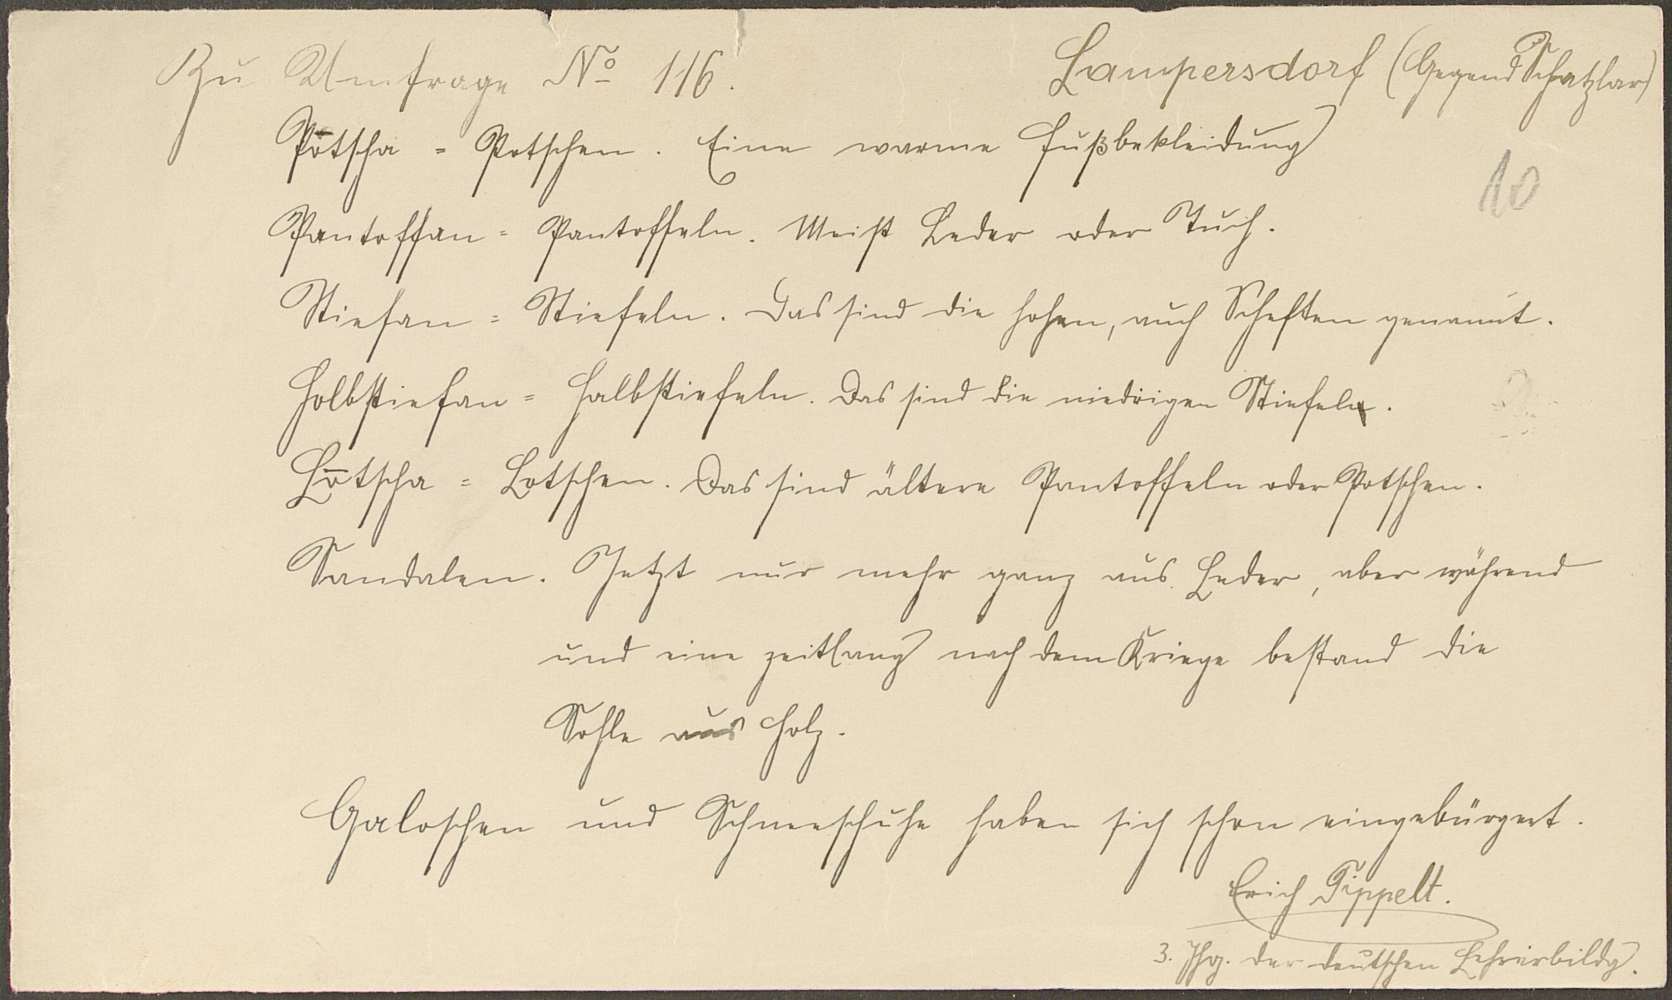 Zu Umfrage No 116.
Lampersdorf (Gegend Schatzlar)
Pōtscha = Potschen. Eine warme Fußbekleidung
10
Pantoffan = Pantoffeln. Meist Leder oder Tuch.
Stiefan = Stiefeln. Das sind die hohen, auch Scheften genannt.
Holbstiefan = Halbstiefeln. Das sind die niedrigen Stiefeln.
Lōtscha = Lotschen. Das sind ältere Pantoffeln oder Potschen.
Sandalen. Jetzt nur mehr ganz aus Leder, aber während
und eine zeitlang nach dem Kriege bestand die
Sohle aus Holz.
Galoschen und Schneeschuhe haben sich schon eingebürgert.
Erich Tippelt.
3. Jhg. der deutschen Lehrerbildg.